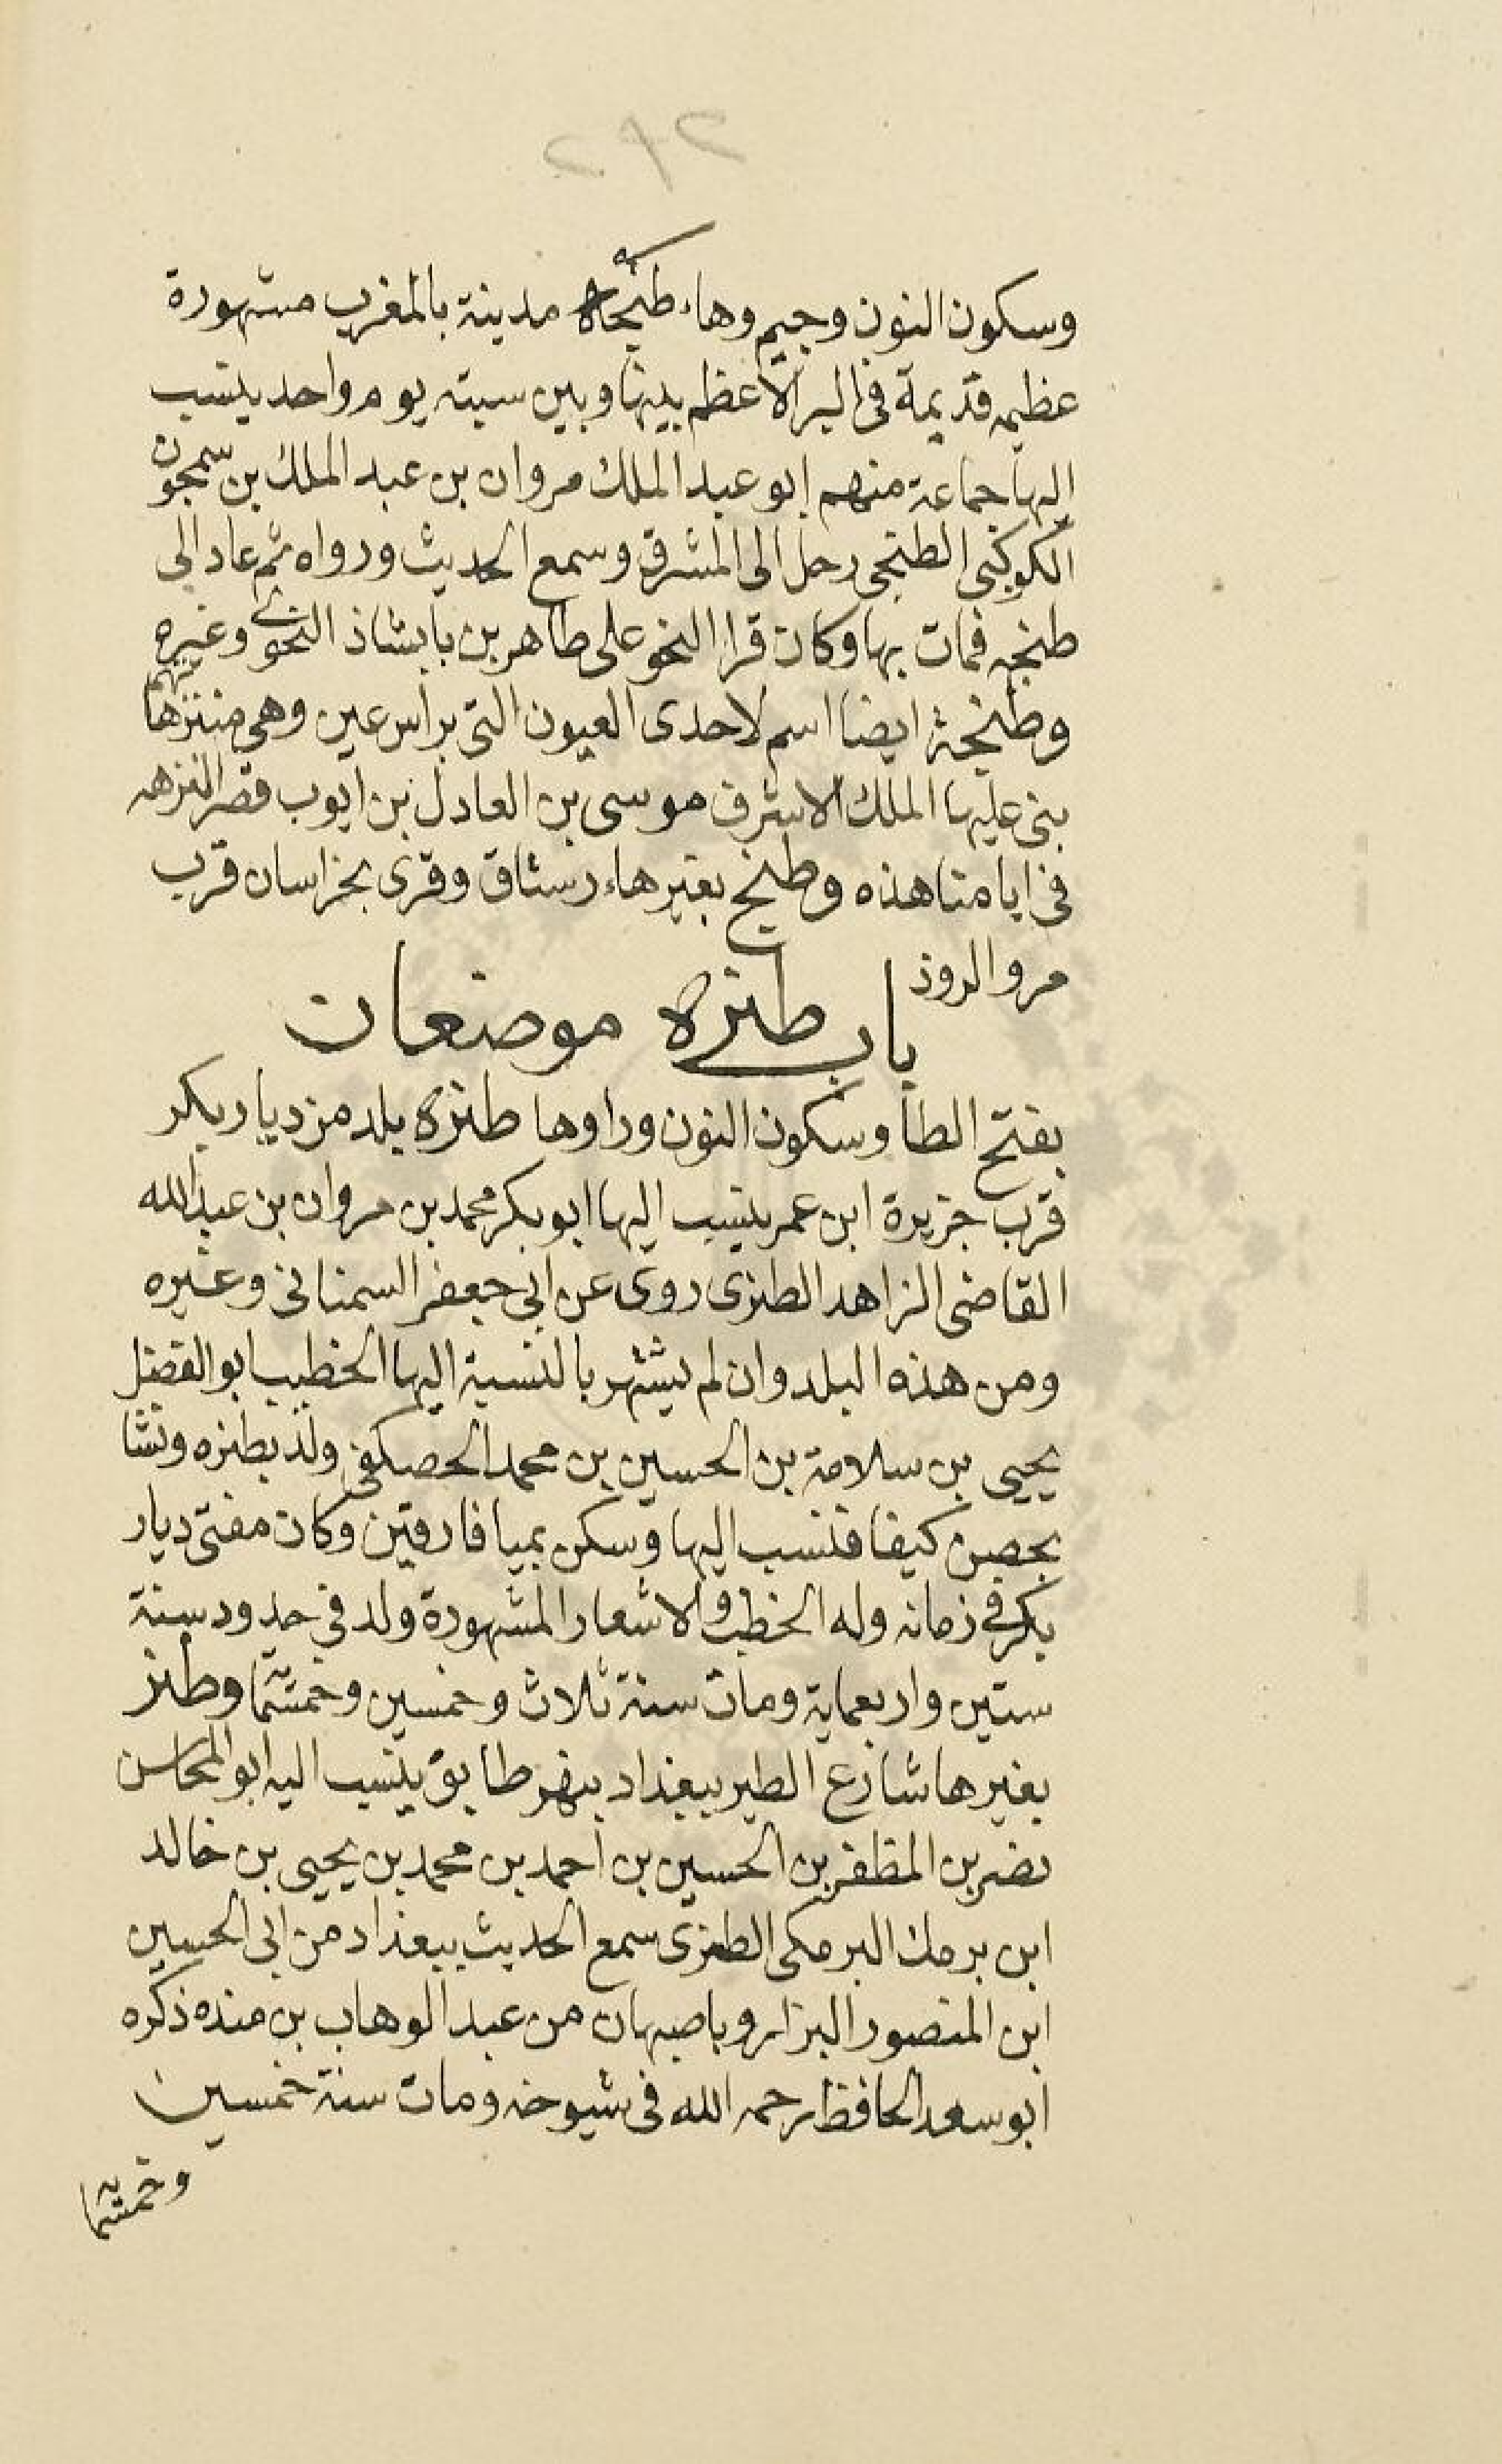 وسكون النون وجيم وهاء طنجه مدينة بالمغرب مشهورة
عظيمه قديمة فى البر الاعظم بينها وبين سبته يوم واحد ينسب
اليها جماعة منهم ابو عبد الملك مروان بن عبد الملك بن سمجون
الكوكبى الطنجى رحل الى المشرق وسمع الحديث ورواه ثم عاد الى
طنجه فمات بها وكان قرا النحو على طاهر بن بابشاذ النحوى وغيره
وطنجة ايضا اسم لاحدى العيون التى براس عين وهى منتزهاتهم
بنى عليها الملك الاشرف موسى بن العادل بن ايوب قصر النزهه
فى ايامنا هذه وطنج بغير هاء رستاق وقرى بخراسان قرب
مرو الروذ
باب طنزه موضعان
بفتح الطا وسكون النون وزا وها طنزه بلد من ديار بكر
قرب جزيرة ابن عمر ينسب اليها ابو بكر محمد بن مروان بن عبد الله
القاضى الزاهد الطنزى روى عن ابى جعفر السمنانى وغيره
ومن هذه البلد وان لم يشتهر بالنسبة اليها الخطيب ابو الفضل
يحيى بن سلامة بن الحسين بن محمد الحصكفى ولد بطنزه ونشا
بحصن كيفا فنسب اليها وسكن بميافارقين وكان مفتى ديار
بكر فى زمانه وله الخطب والاشعار المشهورة ولد فى حدود سنة
ستين واربعماية ومات سنة ثلاث وخمسين وخمسماية وطنز
بغير ها شارع الطير ببغداد بنهر طابق ينسب اليه ابو المحاسن
نصر بن المظفر بن الحسين بن احمد بن محمد بن يحيى بن خالد
ابن برمك البرمكى الطنزى سمع الحديث ببغداد من ابى الحسين
ابن المنصور البزار وباصبهان من عبد الوهاب بن منده ذكره
ابو سعد الحافظ رحمه الله فى شيوخه ومات سنة خمسين
وخمسماية